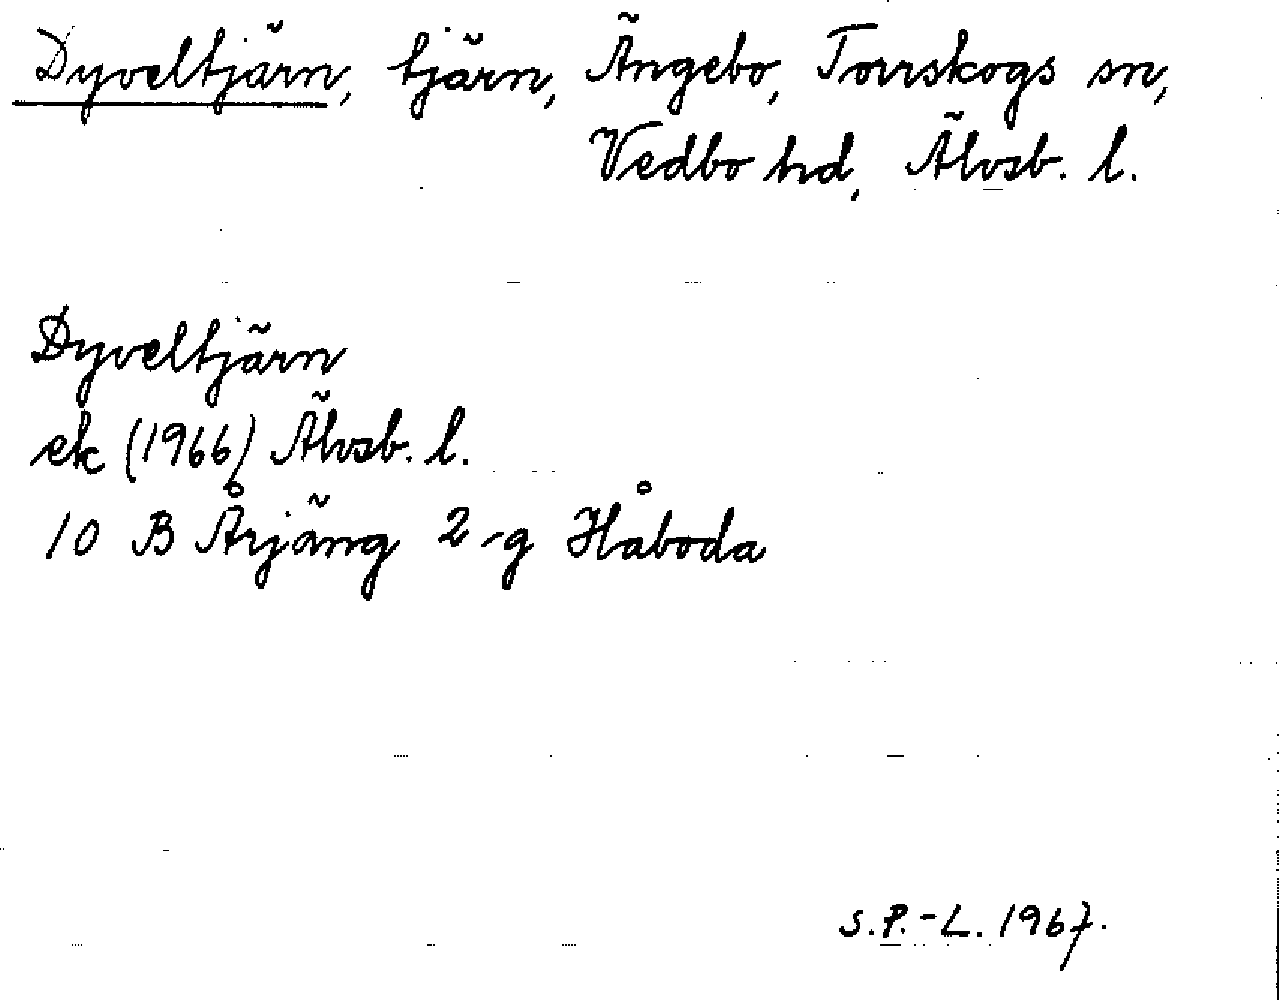 Dyveltjärn, tjärn, Ängebo, Torrskogs sn,
Vedbo hd, Älvsb. l.
Dyveltjärn
ek (1966) Älvsb. l.
10 B Årjäng 2-g Håboda
S.P.-L. 1967.